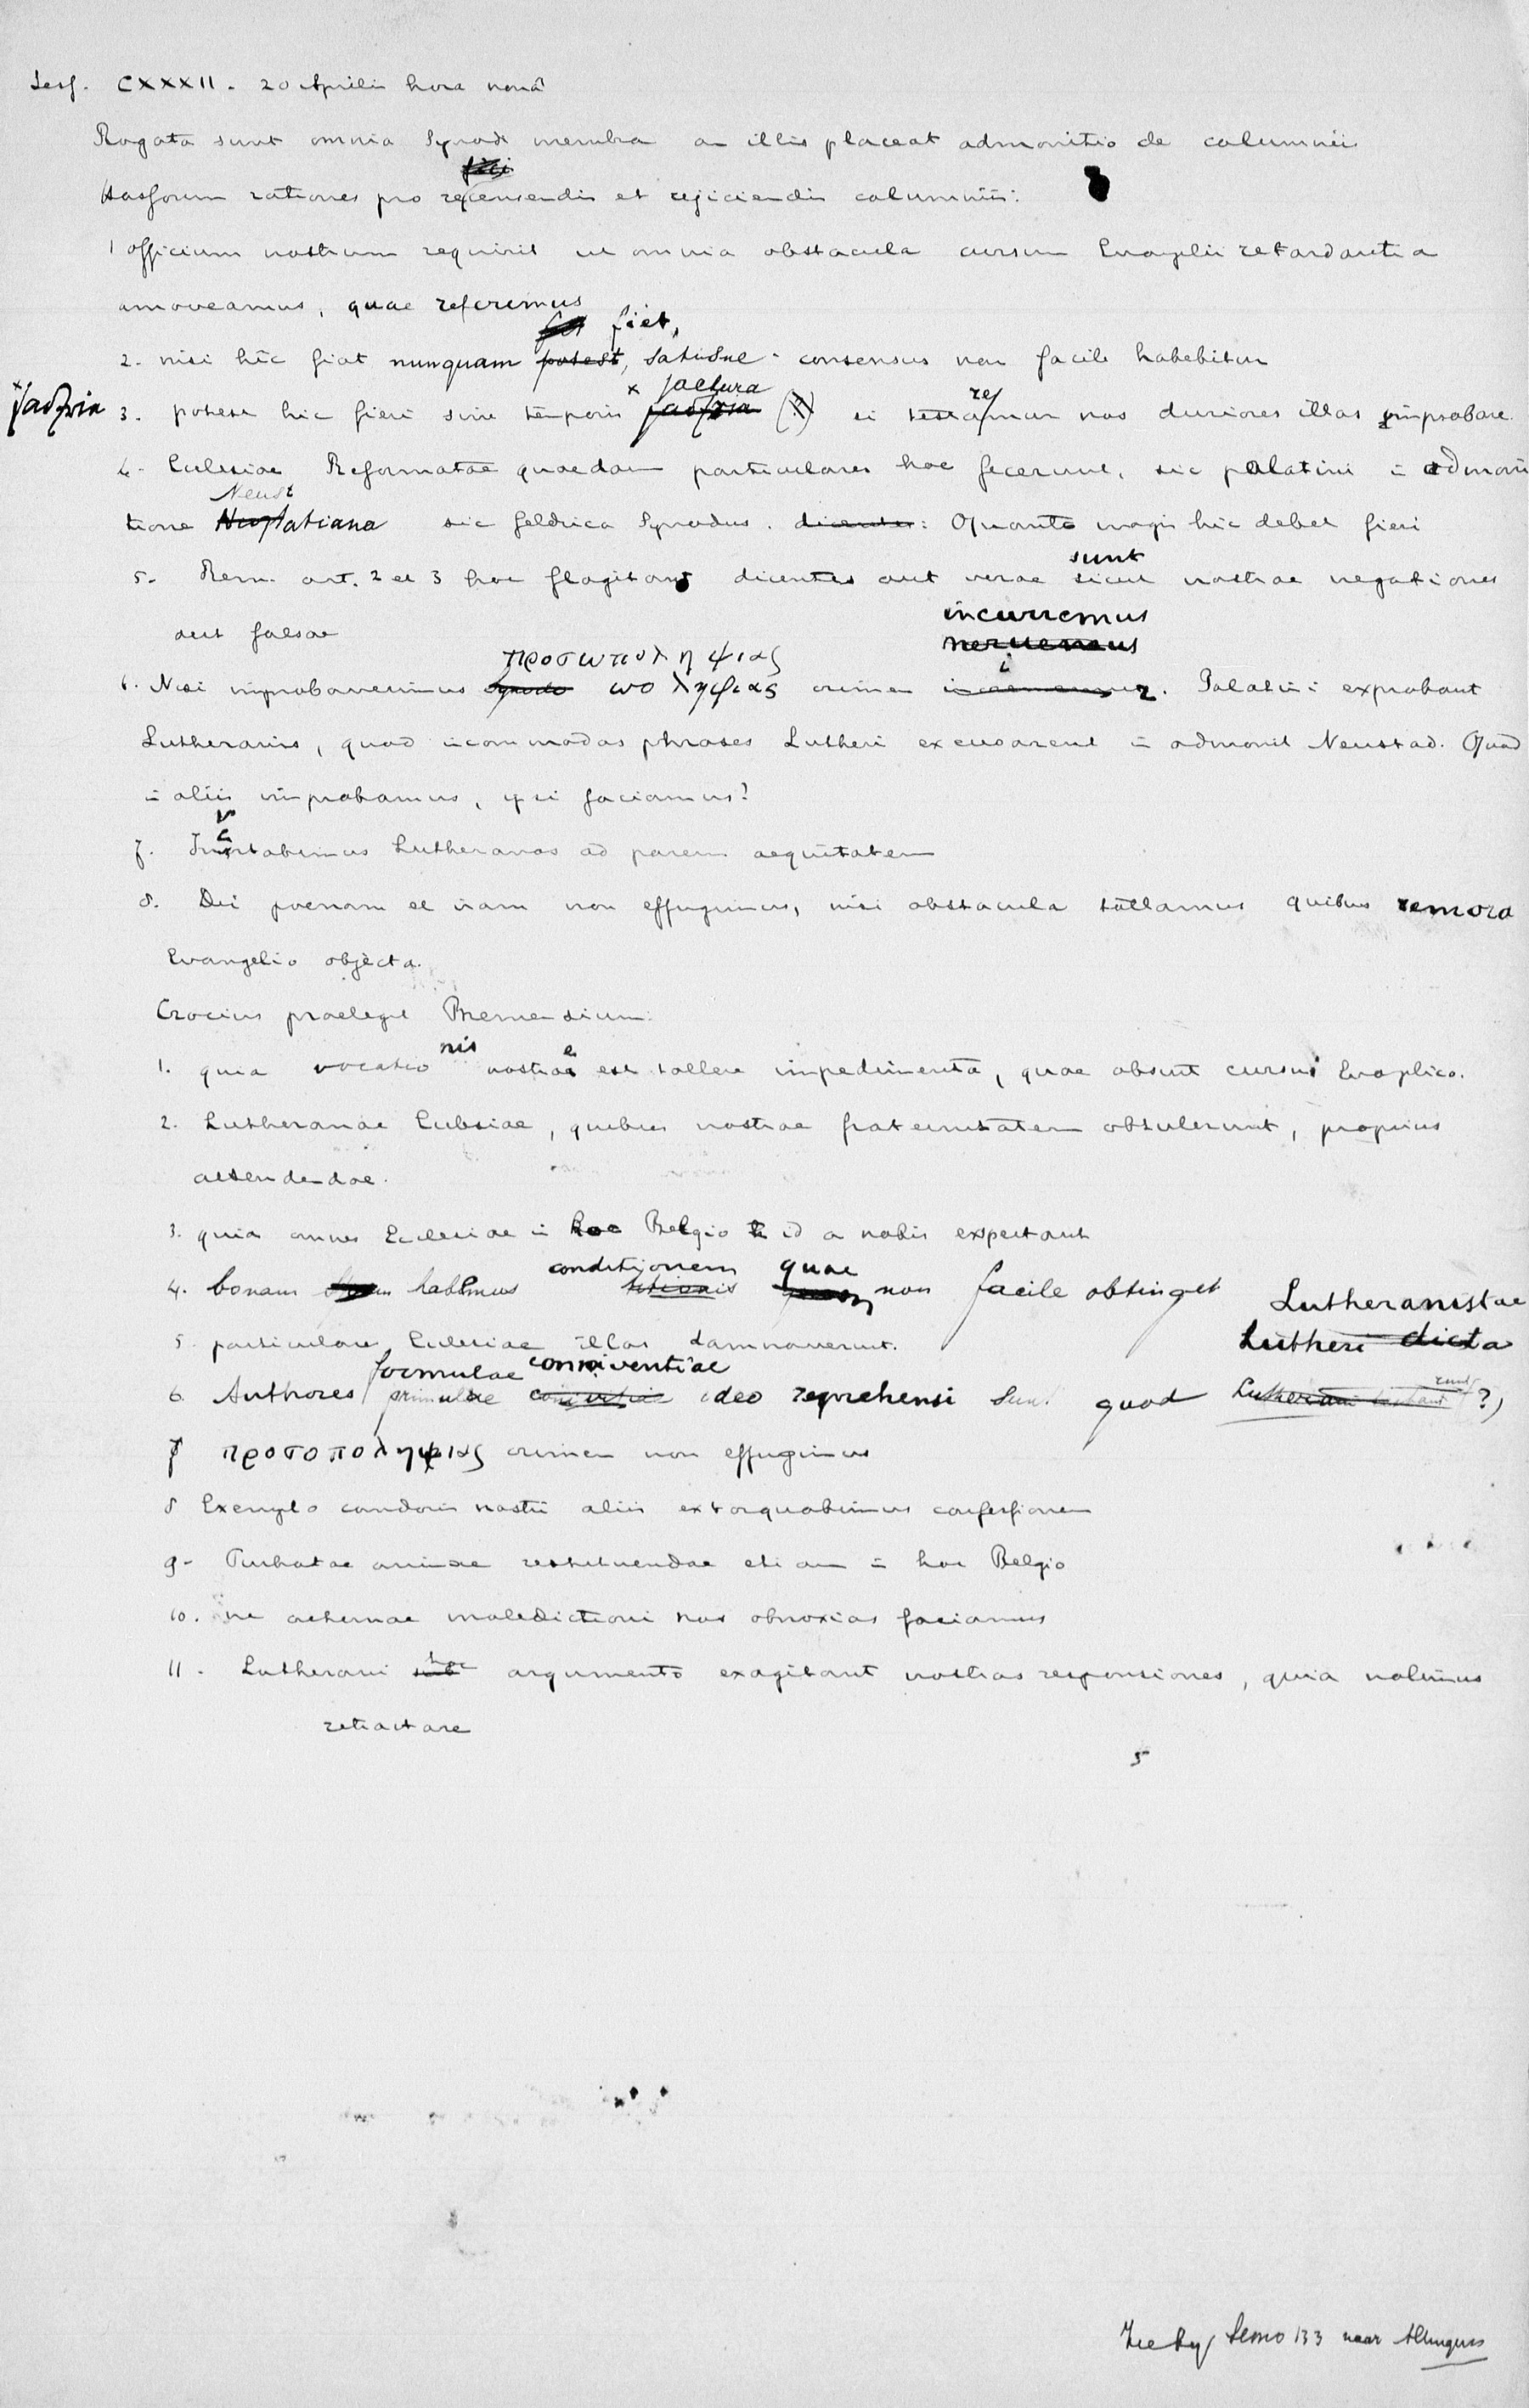 Sess. CXXXII. 20 Aprilis hora nonâ
Rogata sunt omnia Synodi membra an illis placeat admonitio de calumniis
Hassorum rationes pro recensendis et rejiciendis calumniis:
1 officium nostrum requirit ut omnia obstacula cursum Evanglii retardantia
amoveamus, quae referemus
fiet,
2. nisi hic fiat nunquam potest, satisne. consensus non facile habebitur
jactura
re
3. potest hic fieri sine temporis si testamur nos duriores illas improbare.
4. Ecclesiae Reformatae quaedam particulares hoc fecerunt, sic palatini in admoni
Neust
tione atiana sic Geldrica Synodus. dicenter: Quanto magis hic debet fieri
sunt
5. Rem. art. 2 et 3 hoc flagitant dicentes aut verae sicut nostrae negationes
aut falsae
incurremus
προσωποληψιας
6. Nisi improbaverimus synodo ωοληψιας crimen. Palatini exprobant
Lutheranis, quod incommodas phrases Lutheri excusarent in admonit Neustad. Quod
in aliis improbamus, ipsi faciamus?
7. Invitabimus Lutheranos ad parem aequitatem
8. Dei poenam et iram non effugimus, nisi obstacula tollamus quibus remora
Evangelio objecta.
Crocius praelegit Bremensium:
nis e
1. quia vocatio nostrae est tollere impedimenta, quae obsunt cursui Evaplico.
2. Lutheranae Eclesiae, quibus nostrae fraternitatem obtulerunt, propius
attendendae.
3. quia omnes Ecclesiae in hoc Belgio id a nobis expectant
conditionem quae
4. bonam habemus titionis non facile obtinget
Lutheranistae
5. particulare Ecclesiae illas damnaverunt.
Lutheri dicta
formulae conniventiae
6. Authores primulae ideo reprehensi sunt quod ?)
7 προσοποληψιας crimen non effugimus
8 Exemplo candoris nostri aliis extorquabimus confessionem
9. Turbatae animae restituendae etiam in hoc Belgio
10. ne aeternae maledictioni nos obnoxios faciamus
hoc
11. Lutherani sub argumento exagitant nostras responsiones, quia nolimus
retractare
5
133 naar